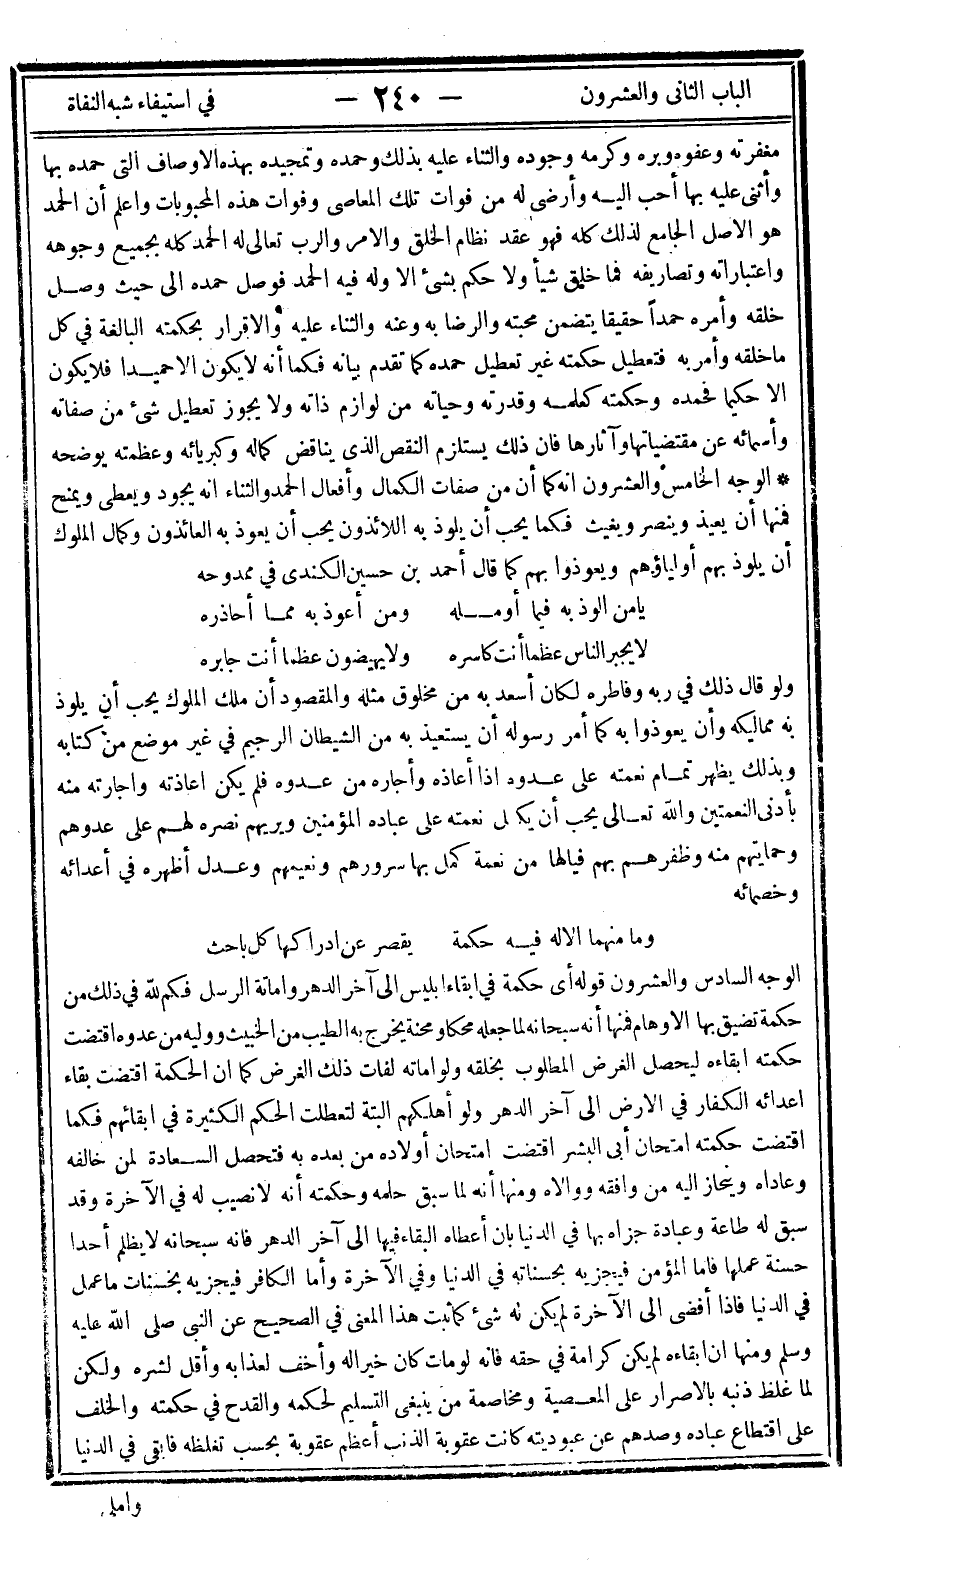 الباب الثانى والعشرون — ٢٤٠ — في استيفاء شبه النفاة
مغفرته وعفوه وبره وكرمه وجوده والثناء عليه بذلك وحمده وتمجيده بهذه الاوصاف التى حمده بها
وأثنى عليه بها أحب اليـــه وأرضى له من فوات تلك المعاصى وفوات هذه المحبوبات واعلم أن الحمد
هو الاصل الجامع لذلك كله فهو عقد نظام الخلق والامر والرب تعالى له الحمد كله بجميع وجوهه
واعتباراته وتصاريفه فما خلق شيأ ولا حكم بشئ الا وله فيه الحمد فوصل حمده الى حيث وصــل
خلقه وأمره حمداً حقيقا يتضمن محبته والرضا به وعنه والثناء عليه والاقرار بحكمته البالغة في كل
ماخلقه وأمر به فتعطيل حكمته غير تعطيل حمده كما تقدم بيانه فكما أنه لايكون الاحميــدا فلايكون
الا حكيما فحمده وحكمته كعلمــه وقدرته وحياته من لوازم ذاته ولا يجوز تعطيل شئ من صفاته
وأسمائه عن مقتضياتها وآثارها فان ذلك يستلزم النقص الذى يناقض كماله وكبريائه وعظمته يوضحه
* الوجه الخامس والعشرون انه كما أن من صفات الكمال وأفعال الحمد والثناء انه يجود ويعطى ويمنح
فمنها أن يعيذ وينصر ويغيث فكما يحب أن يلوذ به اللائذون يحب أن يعوذ به العائذون وكمال الملوك
أن يلوذ بهم أولياؤهم ويعوذوا بهم كما قال أحمد بن حسين الكندى في ممدوحه
يامن الوذ به فيما أومــــله ومن أعوذ به ممــا أحاذره
لايجبر الناس عظما أنت كاسره ولايهيضون عظما أنت جابره
ولو قال ذلك في ربه وفاطره لكان أسعد به من مخلوق مثله والمقصود أن ملك الملوك يحب أن يلوذ
به مماليكه وأن يعوذوا به كما أمر رسوله أن يستعيذ به من الشيطان الرجيم في غير موضع من كتابه
وبذلك يظهر تمــام نعمته على عــدوه اذا أعاذه وأجاره من عــدوه فلم يكن اعاذته واجارته منه
بأدنى النعمتين والله تعــالى يحب أن يكمل نعمته على عباده المؤمنين ويريهم نصره لهــم على عدوهم
وحمايتهم منه وظفرهــم بهم فيالها من نعمة كمل بها سرورهم ونعيمهم وعــدل أظهره في أعدائه
وخصمائه
وما منهما الاله فيــه حكمة يقصر عن ادراكها كل باحث
الوجه السادس والعشرون قوله أى حكمة في ابقاء ابليس الى آخر الدهر واماتة الرسل فكم لله في ذلك من
حكمة تضيق بها الاوهام فمنها أنه سبحانه لما جعله محكا ومحنة يخرج به الطيب من الخبيث ووليه من عدوه اقتضت
حكمته ابقاءه ليحصل الغرض المطلوب بخلقه ولو اماته لفات ذلك الغرض كما ان الحكمة اقتضت بقاء
اعدائه الكفار في الارض الى آخر الدهر ولو أهلكهم البتة لتعطلت الحكم الكثيرة في ابقائهم فكما
اقتضت حكمته امتحان أبى البشر اقتضت امتحان أولاده من بعده به فتحصل الســعادة لمن خالفه
وعاداه وينحاز اليه من وافقه ووالاه ومنها أنه لما سبق حلمه وحكمته أنه لانصيب له في الآخرة وقد
سبق له طاعة وعبادة جزاه بها في الدنيا بان أعطاه البقاء فيها الى آخر الدهر فانه سبحانه لايظلم أحدا
حسنة عملها فاما المؤمن فيجزيه بحسناته في الدنيا وفي الآخرة وأما الكافر فيجزيه بحسنات ماعمل
في الدنيا فاذا أفضى الى الآخرة لم يكن له شئ كما ثبت هذا المعنى في الصحيح عن النبى صلى الله عليه
وسلم ومنها ان ابقاءه لم يكن كرامة في حقه فانه لو مات كان خيرا له وأخف لعذابه وأقل لشره ولكن
لما غلظ ذنبه بالاصرار على المعــصية ومخاصمة من ينبغى التسليم لحكمه والقدح في حكمته والحلف
على اقتطاع عباده وصدهم عن عبوديته كانت عقوبة الذنب أعظم عقوبة بحسب تغلظه فابقى في الدنيا
واملى